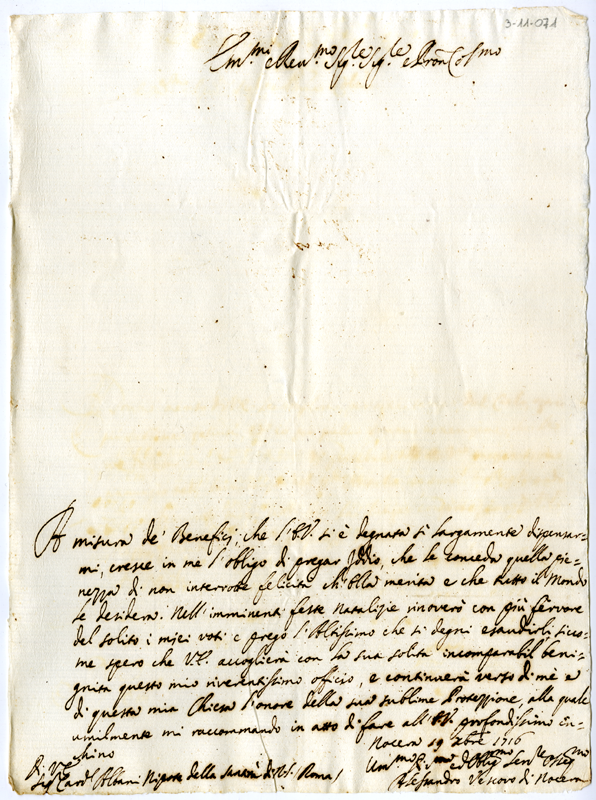 3-11-071
Em.mo e Rev.mo Sig.re Sig.re e Pron Col.mo
A misura de' Beneficj, che l'E.V. si è degnata sì largamente dispensar-
mi, cresce in me l'obligo di pregar Iddio, che le conceda quella pie-
nezza di non interrotte felicità ch'Ella merita e che tutto il Mondo
le desidera. Nell'imminenti feste Natalizie rinoverò con più fervore
del solito i miei voti e prego l'Altissimo che si degni esaudirli, sico-
me spero che V.E. accoglierà con la sua solita incomparabil beni-
gnità questo mio riverentissimo officio, e continuerà verso di mè e
di questa mia Chiesa l'onore della sua sublime Protezzione, alla quale
umilmente mi raccommando in atto di fare all'E.V. profondissimo In-
chino
Nocera 19 Xbre 1716
Di V.E.
Um.mo D.mo ed Oblig.mo Ser.re Osseq.mo
Sig.r Card.l Albani Nipote della Santità di N.S. Roma
Alessandro Vescovo di Nocera